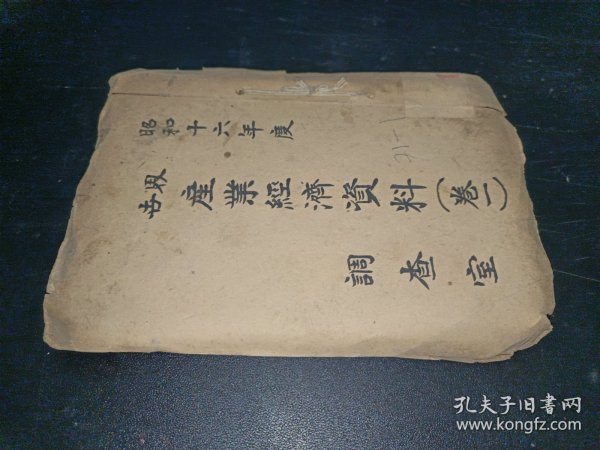 昭和十六年度
世界産業經濟資料（卷一）
調查室
孔夫子旧书网
www.kongfz.com